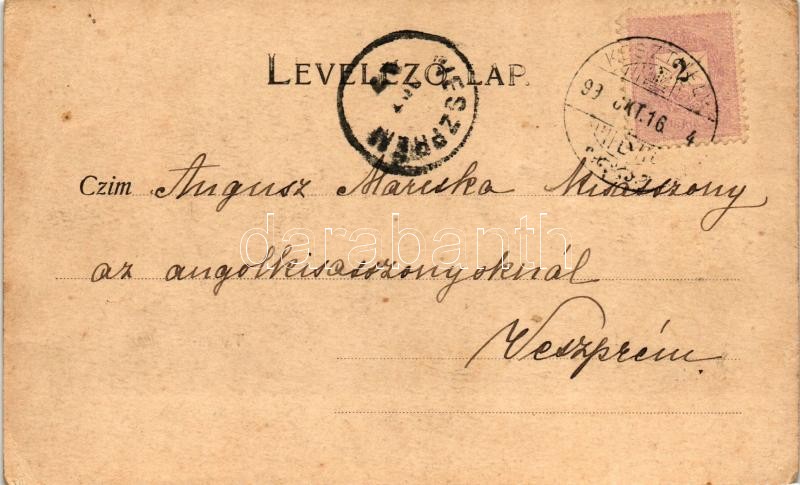 LEVELEZŐ-LAP.
VESZPRÉM
KESZTHELY
99 OKT. 16
4
2
Czim Angusz Mariska Kisasszony
az angolkisasszonyoknál
Veszprém.
darabanth